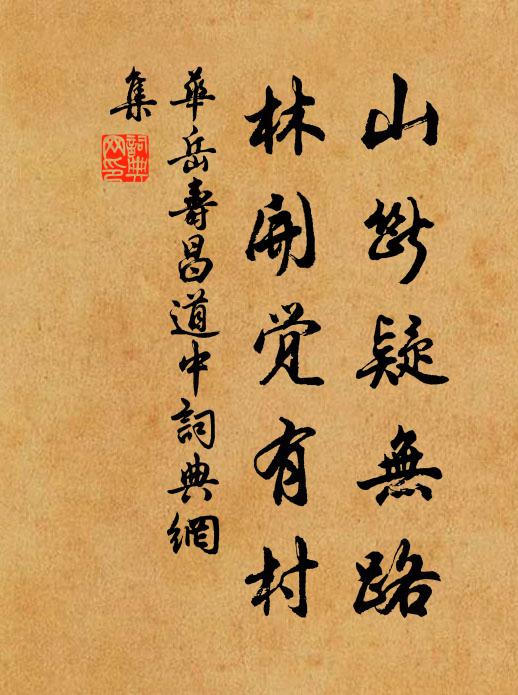 山断疑無路
林開覚有村
華岳壽昌道中詞典網
集
詞典
网印